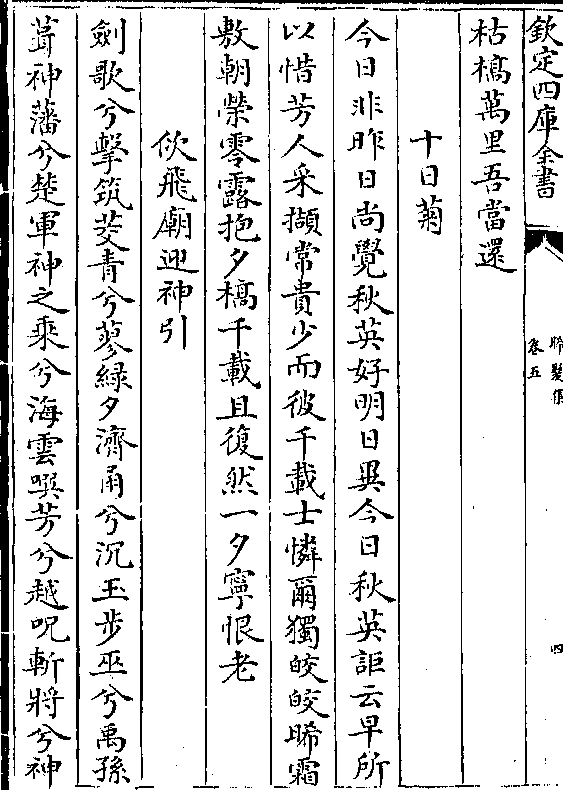 欽定四庫全書
晞髮集
卷五
四
枯槁萬里吾當還
十日菊
今日非昨日尚覺秋英好明日異今日秋英詎云早所
以惜芳人采擷常貴少而彼千載士憐爾獨皎皎晞霜
敷朝榮零露抱夕槁千載且復然一夕寧恨老
佽飛廟迎神引
劍歌兮擊筑茭青兮蓼緑夕濟甬兮沉玉步巫兮禹孫
葺神藩兮楚軍神之乘兮海雲噀芳兮越呪斬將兮神